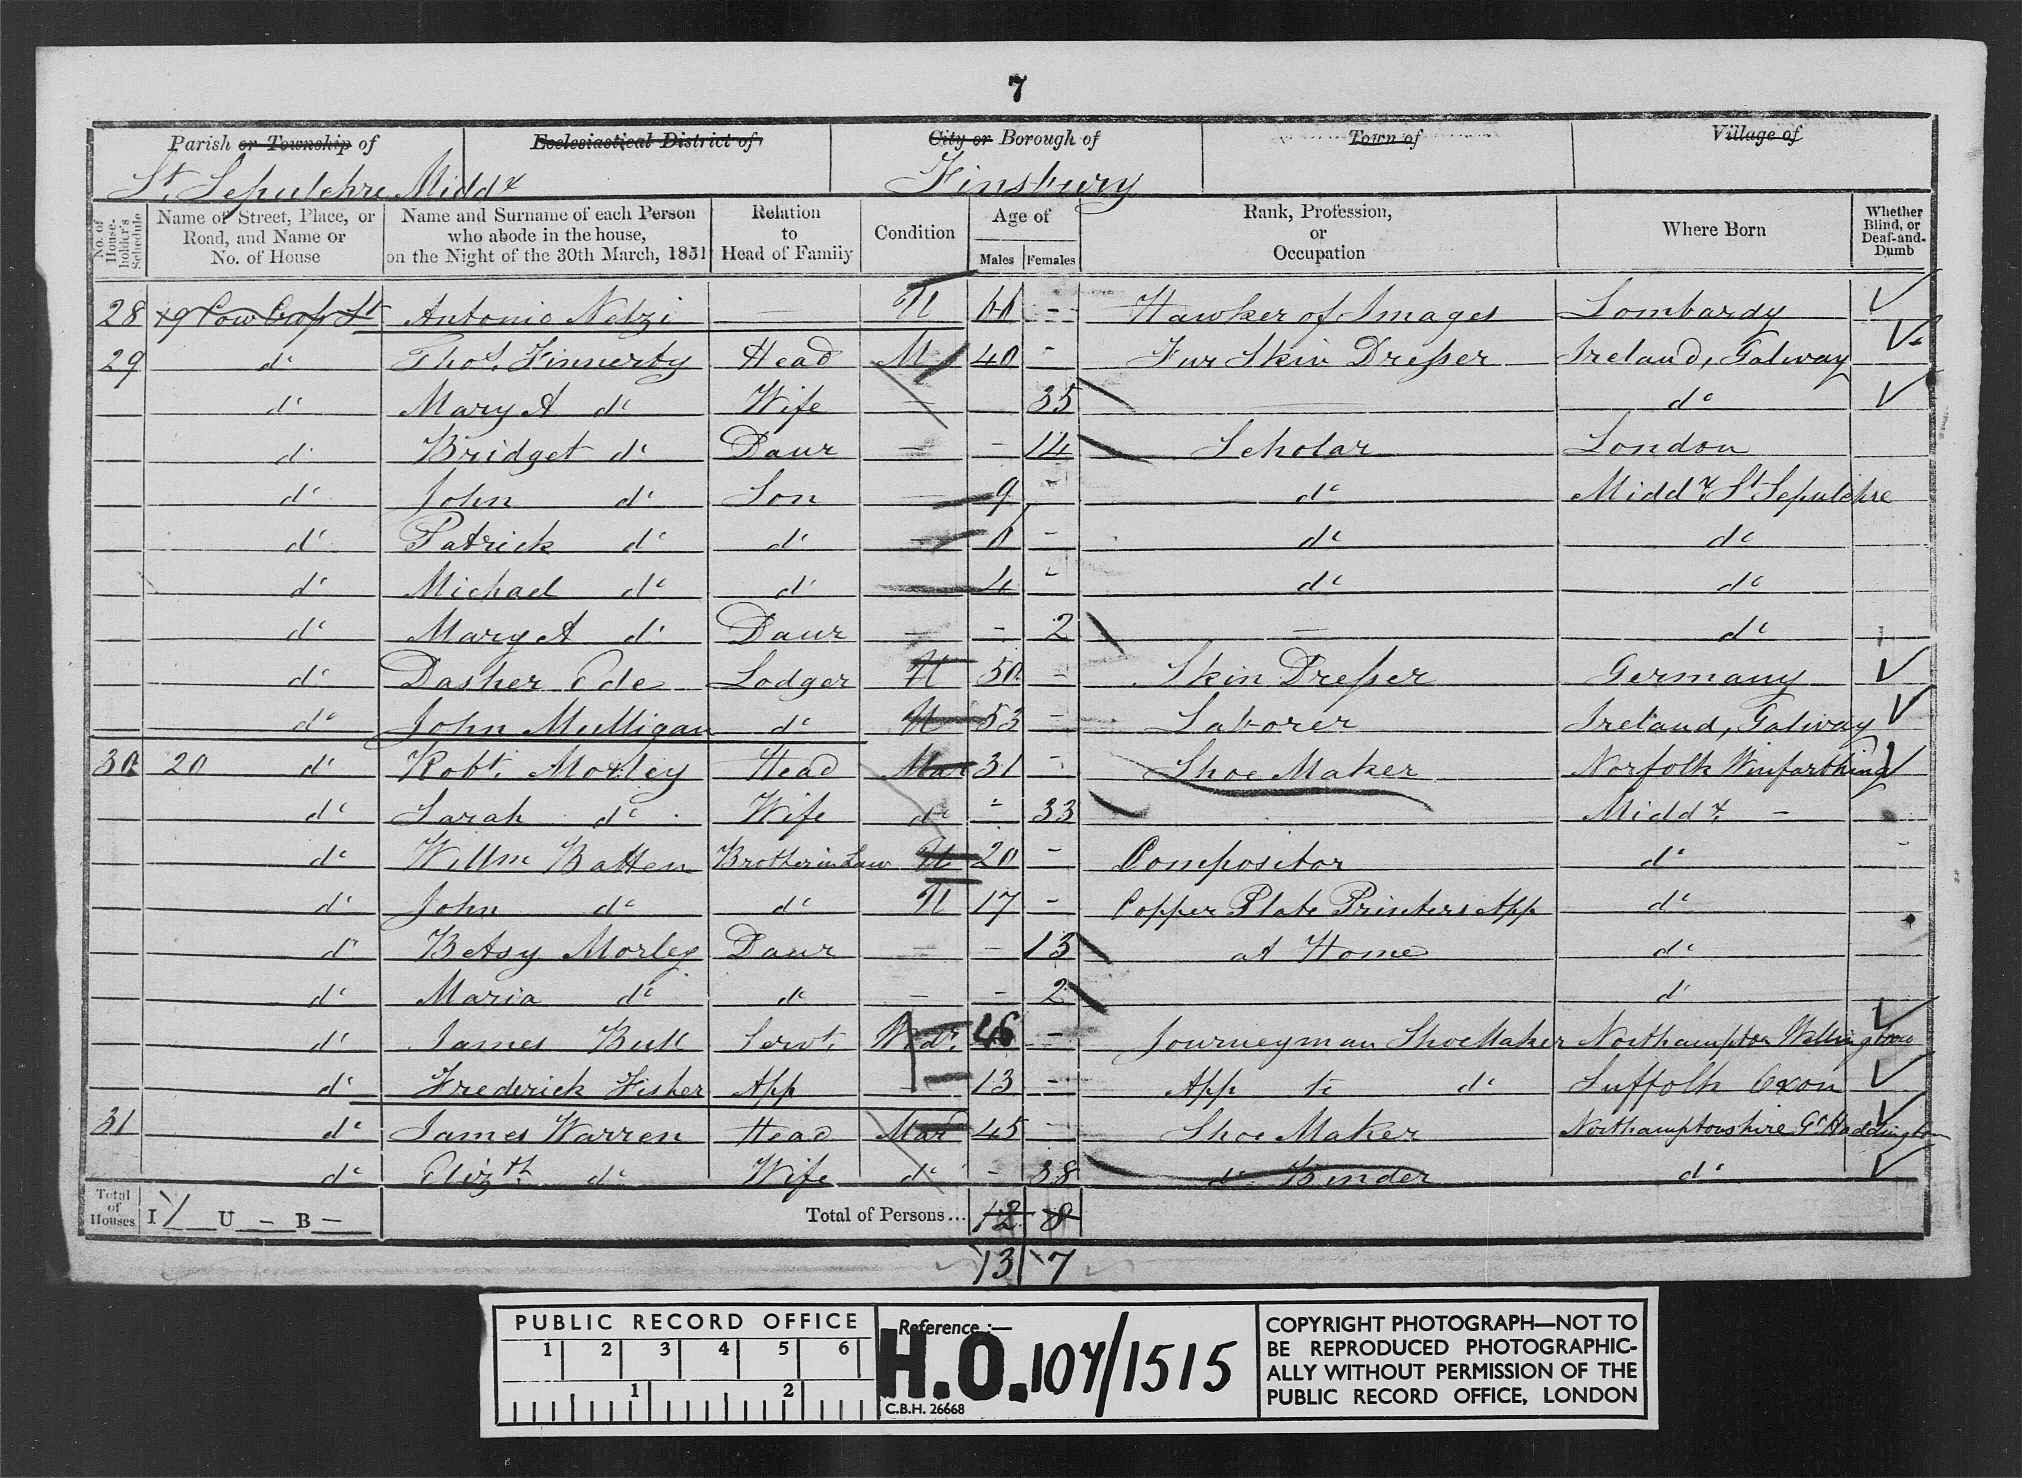 7
Parish or Township of Ecclesiastical District of City or Borough of Town of Village of
St. Sepulchre Middx Finsbury
No. of House-holder's Schedule Name of Street, Place, or Road, and Name or No. of House Name and Surname of each Person who abode in the house, on the Night of the 30th March, 1851 Relation to Head of Family Condition Age of Males Females Rank, Profession, or Occupation Where Born Whether Blind, or Deaf-and-Dumb
28 19 Cow Cross St Antonio Notzi — U — Hawker of Images Lombardy
29 do Thos. Finnerty Head M 40 - Fur Skin Dresser Ireland, Galway
do Mary A do Wife — 35 — do
do Bridget do Daur — - 14 Scholar London
do John do Son — 9 - do Middx St Sepulchre
do Patrick do do — - do do
do Michael do do — 4 - do do
do Mary A do Daur — - 2 — do
do Dasher Ode Lodger U 50 - Skin Dresser Germany
do John Mulligan do U 53 - Laborer Ireland, Galway
30 20 do Robt. Morley Head Mar 31 - Shoe Maker Norfolk Winfarthing
do Sarah do Wife do - 33 Middx. -
do Willm Batten Brother in Law U 20 - Compositor do
do John do do U 17 - Copper Plate Printers App do
do Betsy Morley Daur — - 13 at Home do
do Maria do do — - 2 do
do James Bull Servt. Widr. 46 - Journeyman Shoe Maker Northampton
do Frederick Fisher App — 13 - App to do Suffolk Oxon
31 do James Warren Head Mar 45 - Shoe Maker Northamptonshire Gt Haddington
do Elizth do Wife do - 38 do Binder do
Total of Houses I / U - B - Total of Persons... 12 8
13 7
PUBLIC RECORD OFFICE
1 2 3 4 5 6
1 2
Reference :—
H.O. 107/1515
C.B.H. 26668
COPYRIGHT PHOTOGRAPH—NOT TO
BE REPRODUCED PHOTOGRAPHIC-
ALLY WITHOUT PERMISSION OF THE
PUBLIC RECORD OFFICE, LONDON